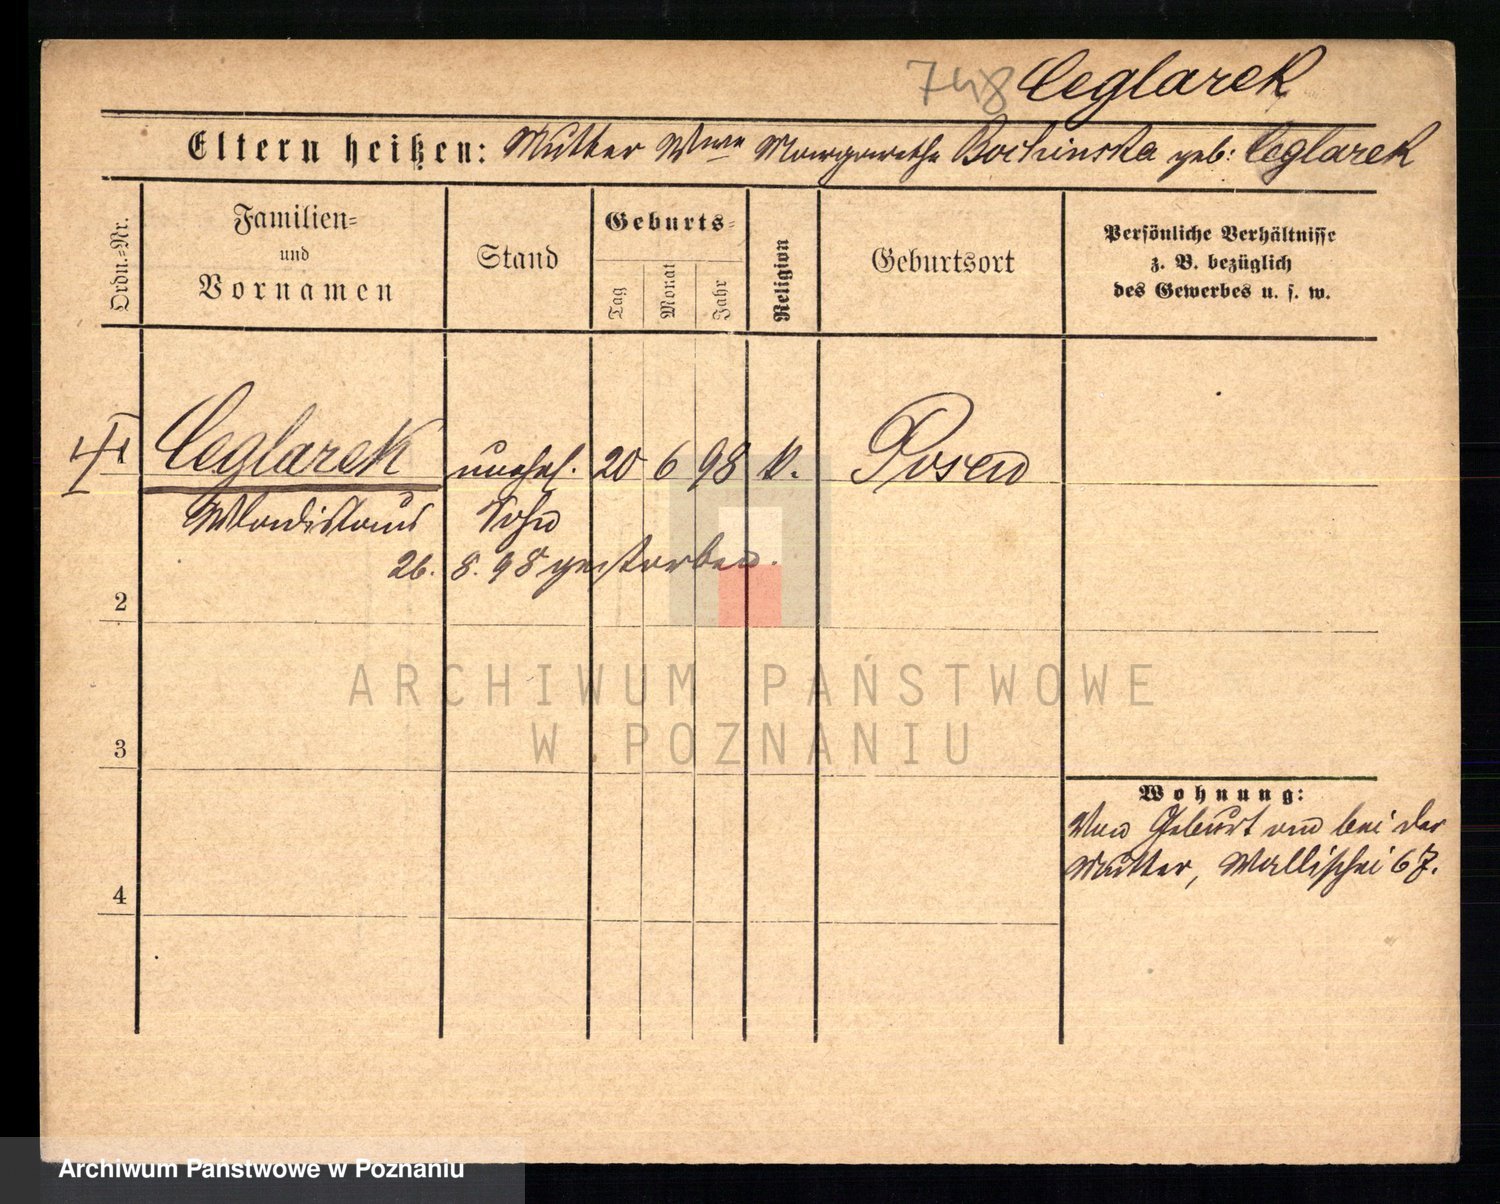 748 Ceglarek
Eltern heißen: Mutter Wwe Margarethe Bochinska geb: Ceglarek
Ordn.-Nr.
Familien-
und
Vornamen
Stand
Geburts-
Tag
Monat
Jahr
Religion
Geburtsort
Persönliche Verhältnisse
z. B. bezüglich
des Gewerbes u. s. w.
1 Ceglarek unehel. 20 6 98 k. Posen
Wladislaus Sohn
26. 8. 98 gestorben.
2
3
4
Wohnung:
Von Geburt an bei der
Mutter, Wallischei 67.
ARCHIWUM PAŃSTWOWE
W POZNANIU
Archiwum Państwowe w Poznaniu